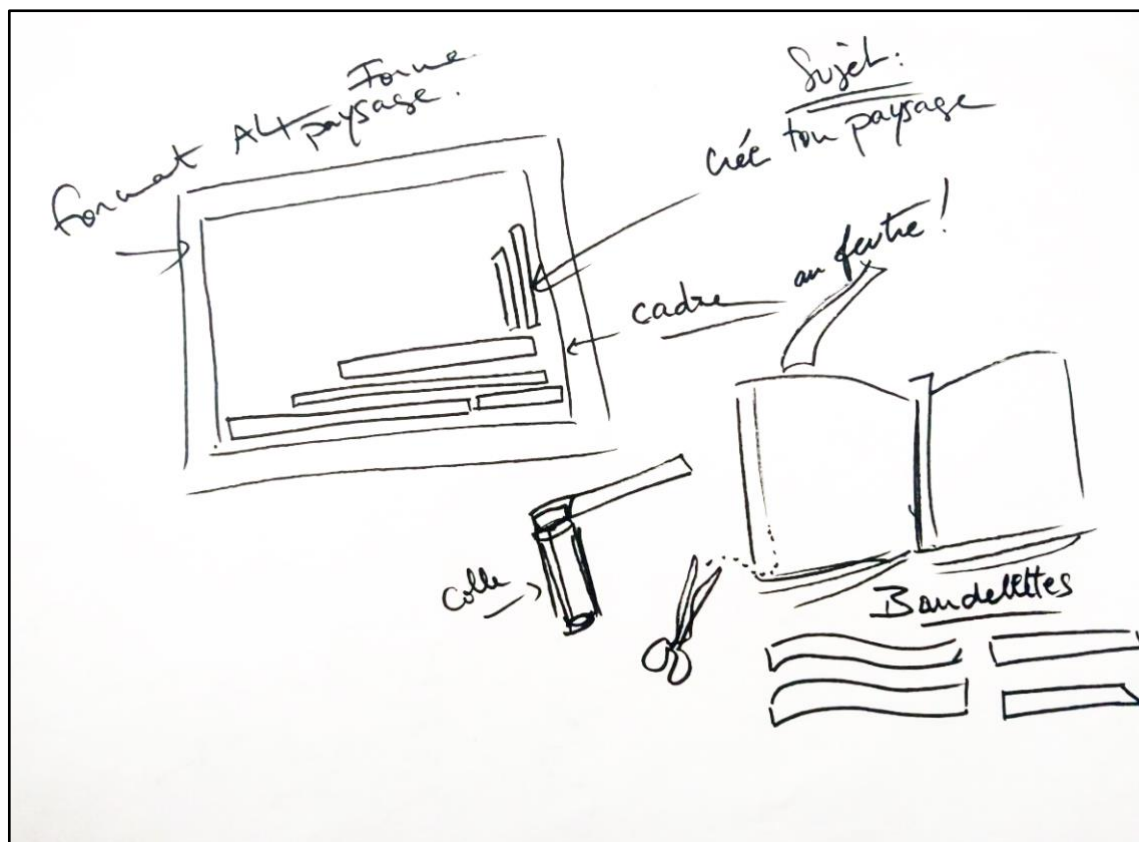 Format A4 Forme
paysage.
Sujèt:
crée ton paysage
cadre au feutre!
colle
Bandelettes